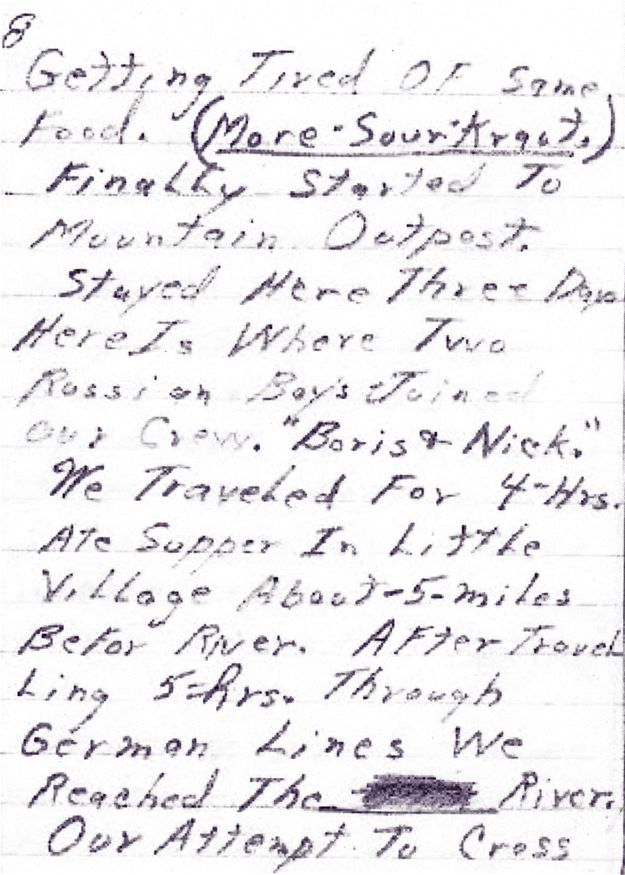 8
Getting Tired Of Same
Food. (More-Sour-Kraut.)
Finally Started To
Mountain Outpost.
Stayed Here Three Days
Here Is Where Two
Russian Boys Joined
our Crew. "Boris & Nick."
We Traveled For 4-Hrs.
Ate Supper In Little
Village About-5-miles
Befor River. After Travel
Ling 5-hrs. Through
German Lines We
Reached The River.
Our Attempt To Cross